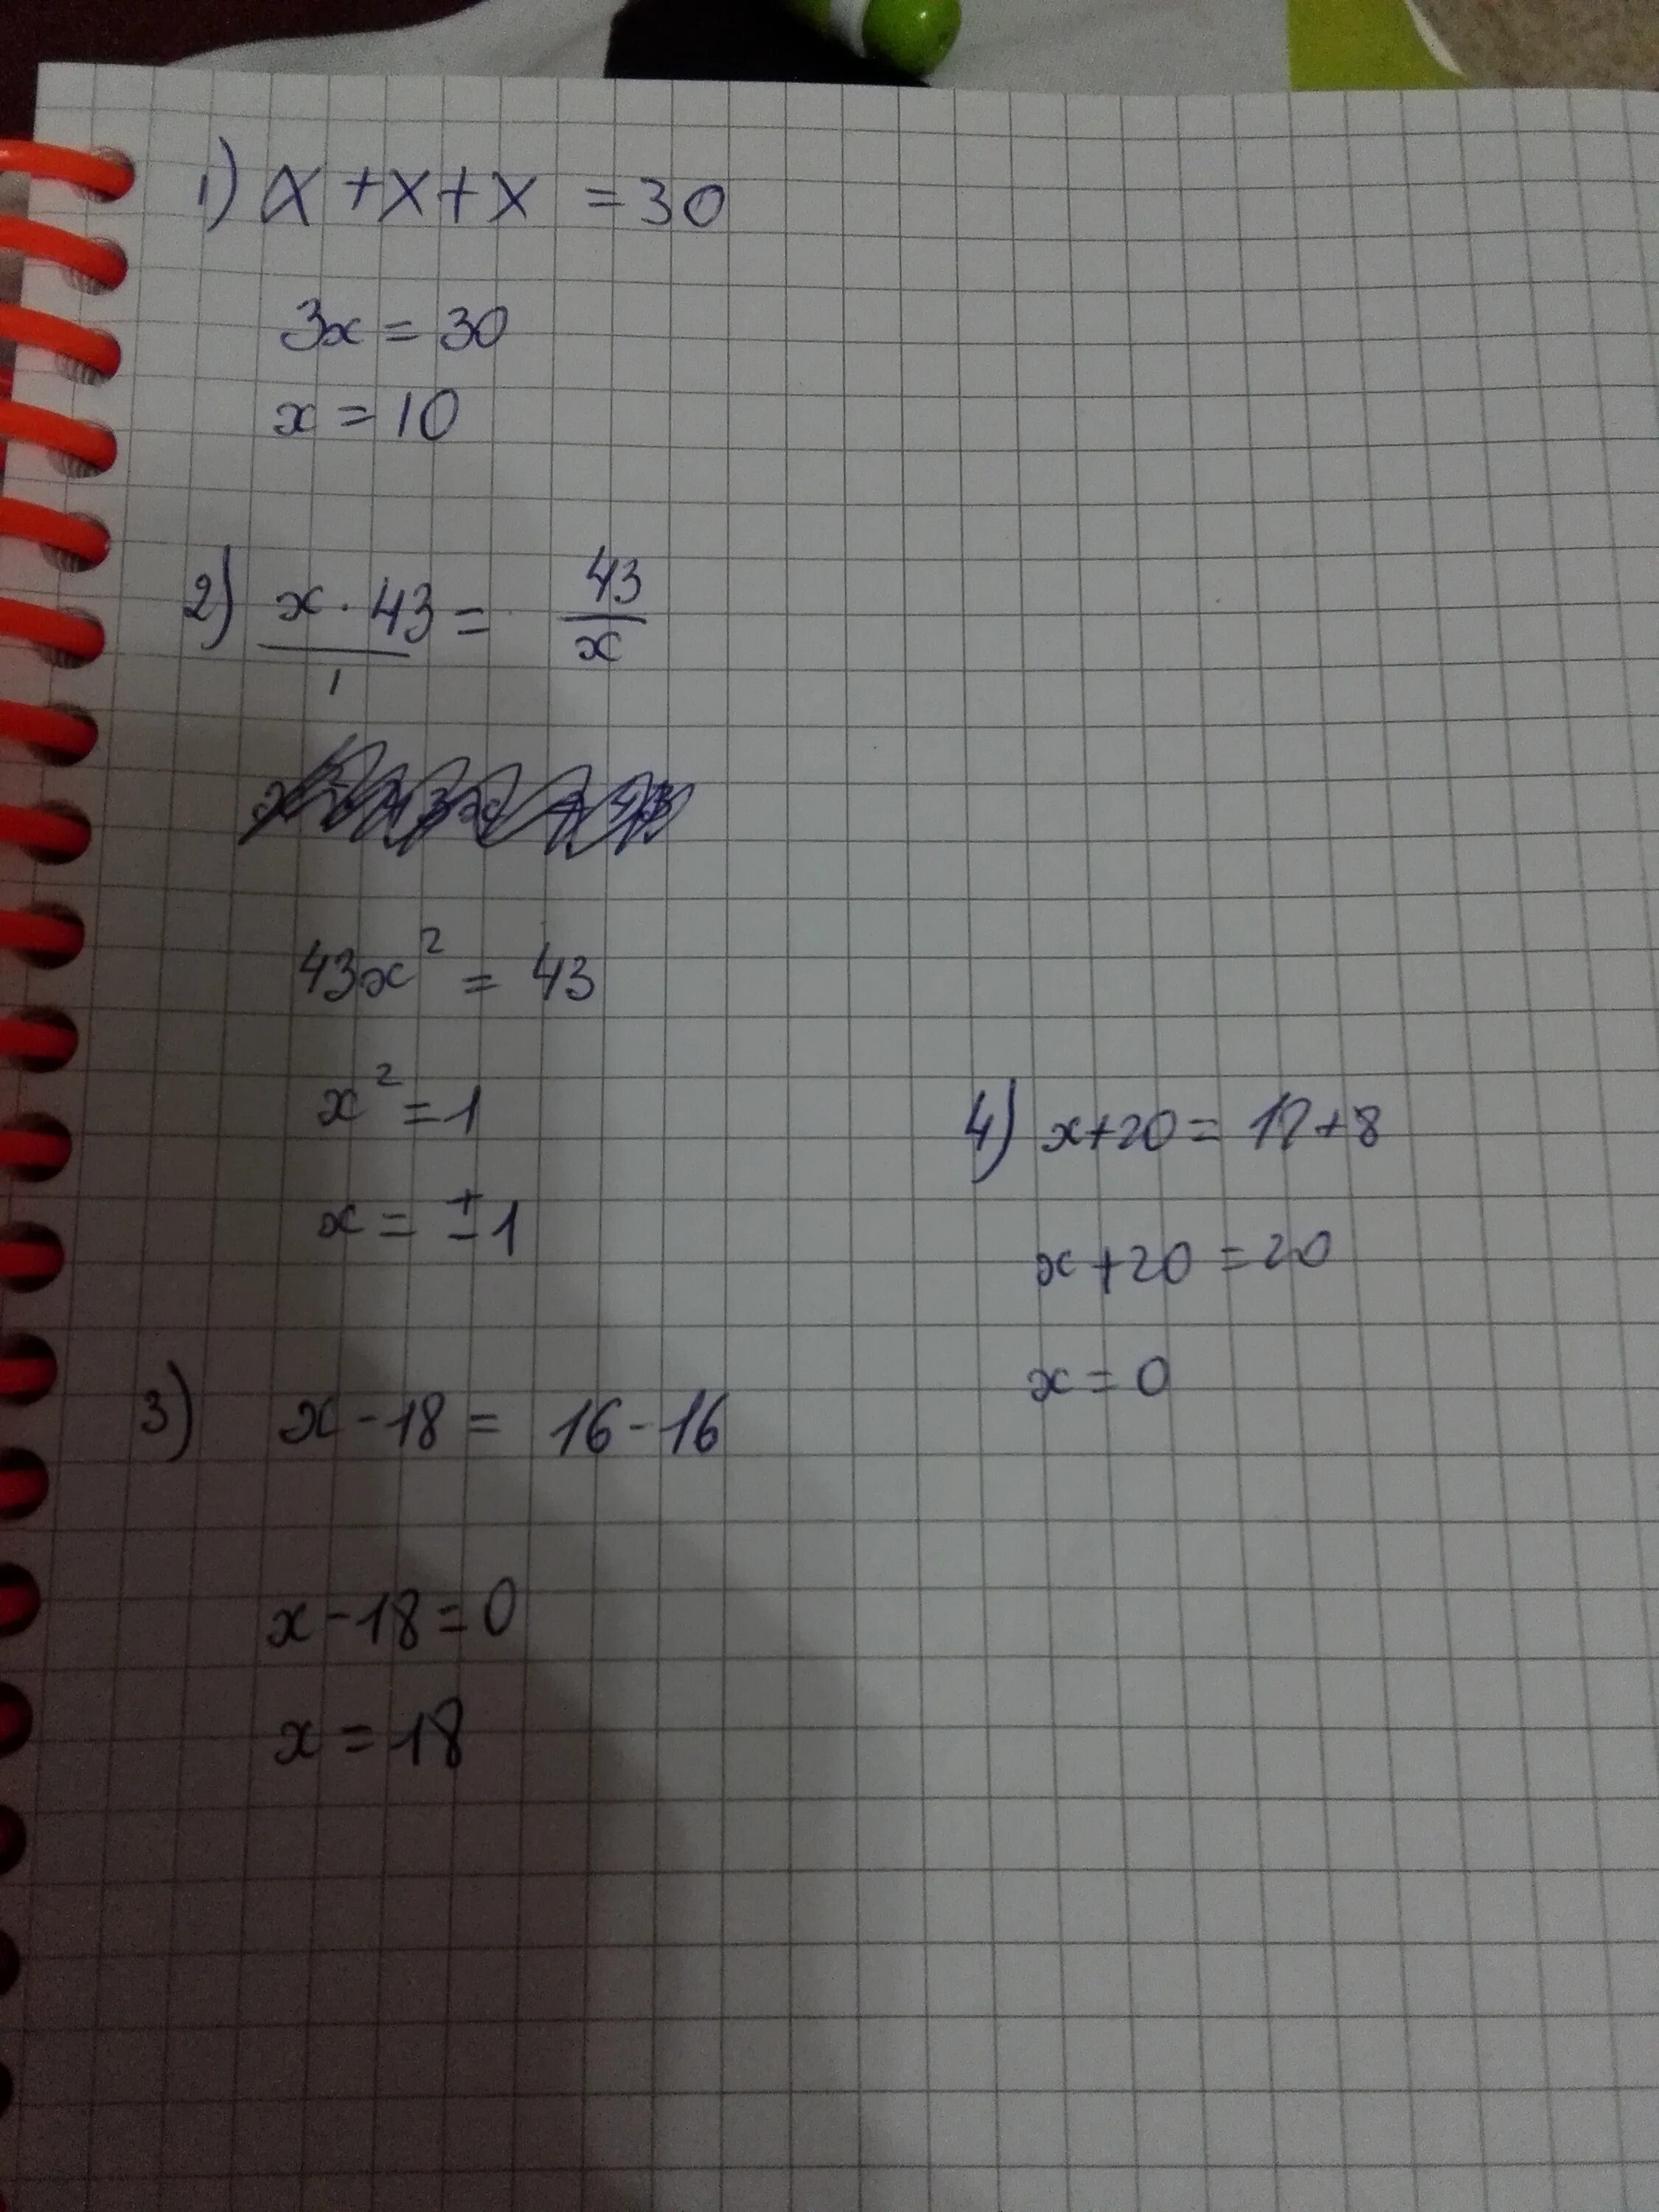 1) x + x + x = 30
3x = 30
x = 10
2) x · 43 / 1 = 43 / x
43x² = 43
x² = 1
x = ±1
3) x - 18 = 16 - 16
x - 18 = 0
x = 18
4) x + 20 = 12 + 8
x + 20 = 20
x = 0